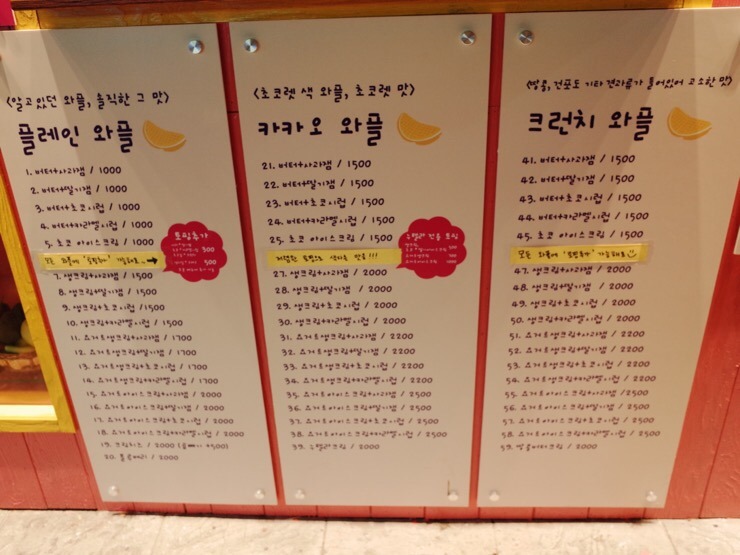 <알고있던 와플, 솔직한 그 맛>
플레인 와플
1. 버터+사과잼 / 1000
2. 버터+딸기잼 / 1000
3. 버터+초코시럽 / 1000
4. 버터+카라멜시럽 / 1000
5. 초코 아이스크림 / 1000
모든 와플에 '토핑추가' 가능해요
토핑추가
300
500
7. 생크림+사과잼 / 1500
8. 생크림+딸기잼 / 1500
9. 생크림+초코시럽 / 1500
10. 생크림+카라멜시럽 / 1500
11. 요거트생크림+사과잼 / 1700
12. 요거트생크림+딸기잼 / 1700
13. 요거트생크림+초코시럽 / 1700
14. 요거트생크림+카라멜시럽 / 1700
15. 요거트아이스크림+사과잼 / 2000
16. 요거트아이스크림+딸기잼 / 2000
17. 요거트아이스크림+초코시럽 / 2000
18. 요거트아이스크림+카라멜시럽 / 2000
19. 크림치즈 / 2000 +500)
20. 블루베리 / 2000
<초코렛 색 와플, 초코렛 맛>
카카오 와플
21. 버터+사과잼 / 1500
22. 버터+딸기잼 / 1500
23. 버터+초코시럽 / 1500
24. 버터+카라멜시럽 / 1500
25. 초코 아이스크림 / 1500
27. 생크림+사과잼 / 2000
28. 생크림+딸기잼 / 2000
29. 생크림+초코시럽 / 2000
30. 생크림+카라멜시럽 / 2000
31. 요거트생크림+사과잼 / 2200
32. 요거트생크림+딸기잼 / 2200
33. 요거트생크림+초코시럽 / 2200
34. 요거트생크림+카라멜시럽 / 2200
35. 요거트아이스크림+사과잼 / 2500
36. 요거트아이스크림+딸기잼 / 2500
37. 요거트아이스크림+초코시럽 / 2500
38. 요거트아이스크림+카라멜시럽 / 2500
39. 누텔라크림 / 2000
<땅콩, 건포도 기타 견과류가 들어있어 고소한 맛>
크런치 와플
41. 버터+사과잼 / 1500
42. 버터+딸기잼 / 1500
43. 버터+초코시럽 / 1500
44. 버터+카라멜시럽 / 1500
45. 초코 아이스크림 / 1500
모든 와플에 '토핑추가' 가능해요
47. 생크림+사과잼 / 2000
48. 생크림+딸기잼 / 2000
49. 생크림+초코시럽 / 2000
50. 생크림+카라멜시럽 / 2000
51. 요거트생크림+사과잼 / 2200
52. 요거트생크림+딸기잼 / 2200
53. 요거트생크림+초코시럽 / 2200
54. 요거트생크림+카라멜시럽 / 2200
55. 요거트아이스크림+사과잼 / 2500
56. 요거트아이스크림+딸기잼 / 2500
57. 요거트아이스크림+초코시럽 / 2500
58. 요거트아이스크림+카라멜시럽 / 2500
59. 땅콩버터크림 / 2000